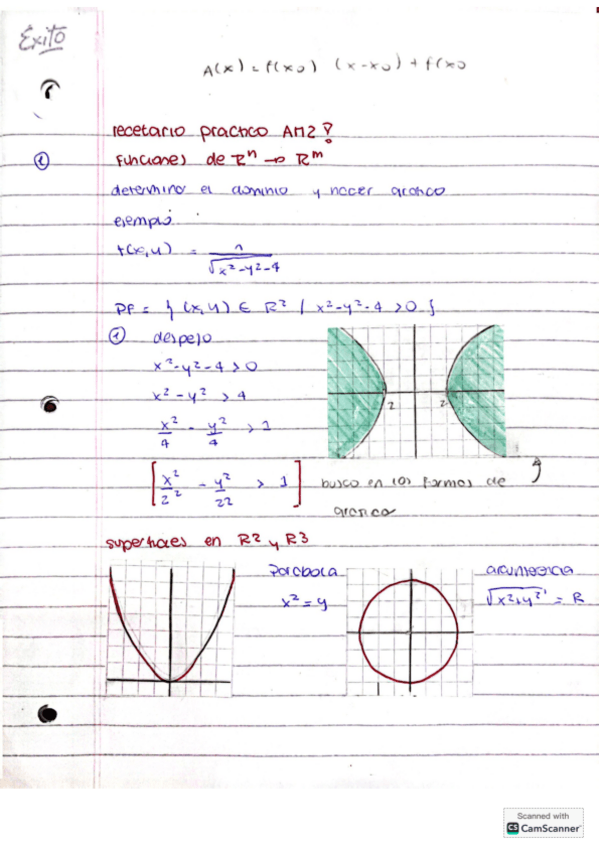 Éxito
A(x) = f(x0) (x-x0) + f(x0
recetario practico AM2
①
Funciones de Rⁿ → Rᵐ
determino el dominio y hacer grafico
ejemplo
f(x,y) = 1/√x²-y²-4
Df = { (x,y) ∈ R² / x²-y²-4 >0 }
① despejo
x²-y²-4 >0
x²-y² > 4
x²/4 - y²/4 > 1
2 2
[x²/2² - y²/22 > 1] busco en las formas de
grafica
superficies en R2 y R3
Parabola
circunferencia
x² = y
√x²+y² = R
Scanned with
CS CamScanner